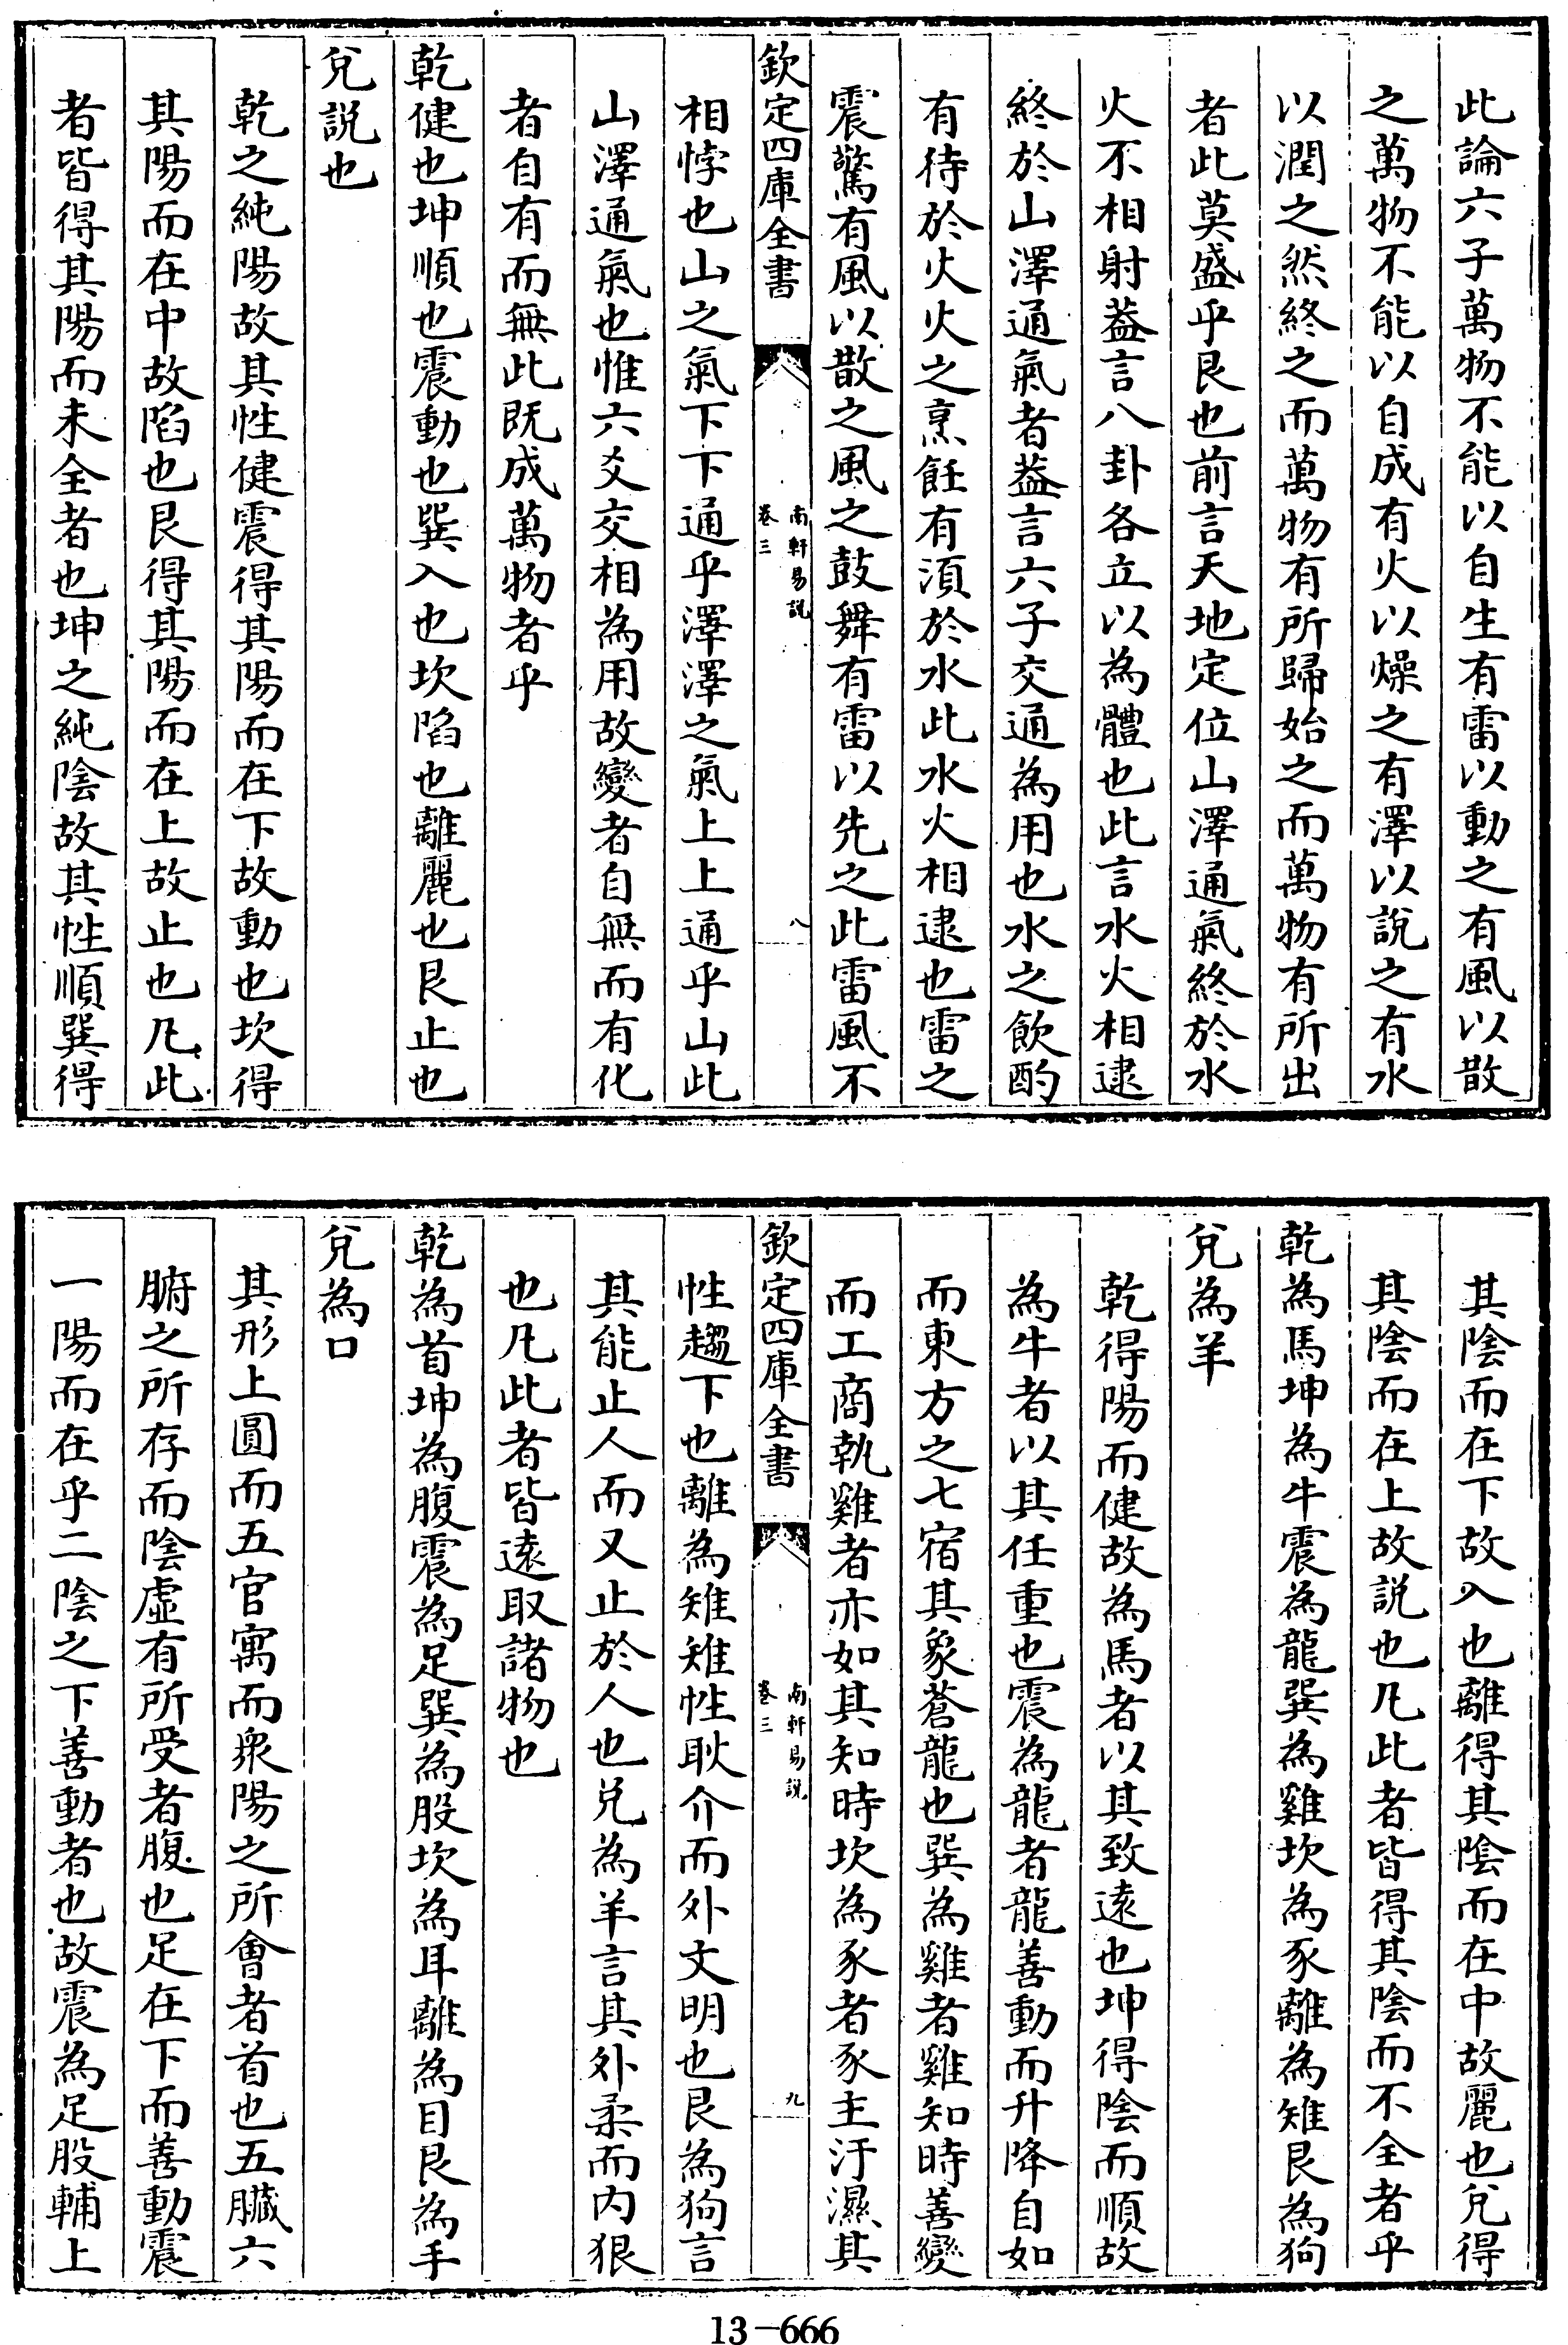 此論六子萬物不能以自生有雷以動之有風以散
之萬物不能以自成有火以燥之有澤以說之有水
以潤之然終之而萬物有所歸始之而萬物有所出
者此莫盛乎艮也前言天地定位山澤通氣終於水
火不相射葢言八卦各立以為體也此言水火相逮
終於山澤通氣者葢言六子交通為用也水之飲酌
有待於火火之烹飪有湏於水此水火相逮也雷之
震驚有風以散之風之鼓舞有雷以先之此雷風不
欽定四庫全書
南軒易說
卷三
八
相悖也山之氣下下通乎澤澤之氣上上通乎山此
山澤通氣也惟六爻交相為用故變者自無而有化
者自有而無此既成萬物者乎
乾健也坤順也震動也巽入也坎陷也離麗也艮止也
兌說也
乾之純陽故其性健震得其陽而在下故動也坎得
其陽而在中故陷也艮得其陽而在上故止也凡此
者皆得其陽而未全者也坤之純陰故其性順巽得
其陰而在下故入也離得其陰而在中故麗也兌得
其陰而在上故說也凡此者皆得其陰而不全者乎
乾為馬坤為牛震為龍巽為雞坎為豕離為雉艮為狗
兌為羊
乾得陽而健故為馬者以其致遠也坤得陰而順故
為牛者以其任重也震為龍者龍善動而升降自如
而東方之七宿其象蒼龍也巽為雞者雞知時善變
而工商執雞者亦如其知時坎為豕者豕主汙濕其
欽定四庫全書
南軒易說
卷三
九
性趨下也離為雉雉性耿介而外文明也艮為狗言
其能止人而又止於人也兌為羊言其外柔而內狠
也凡此者皆遠取諸物也
乾為首坤為腹震為足巽為股坎為耳離為目艮為手
兌為口
其形上圓而五官寓而眾陽之所會者首也五臟六
腑之所存而陰虛有所受者腹也足在下而善動震
一陽而在乎二陰之下善動者也故震為足股輔上
13-666